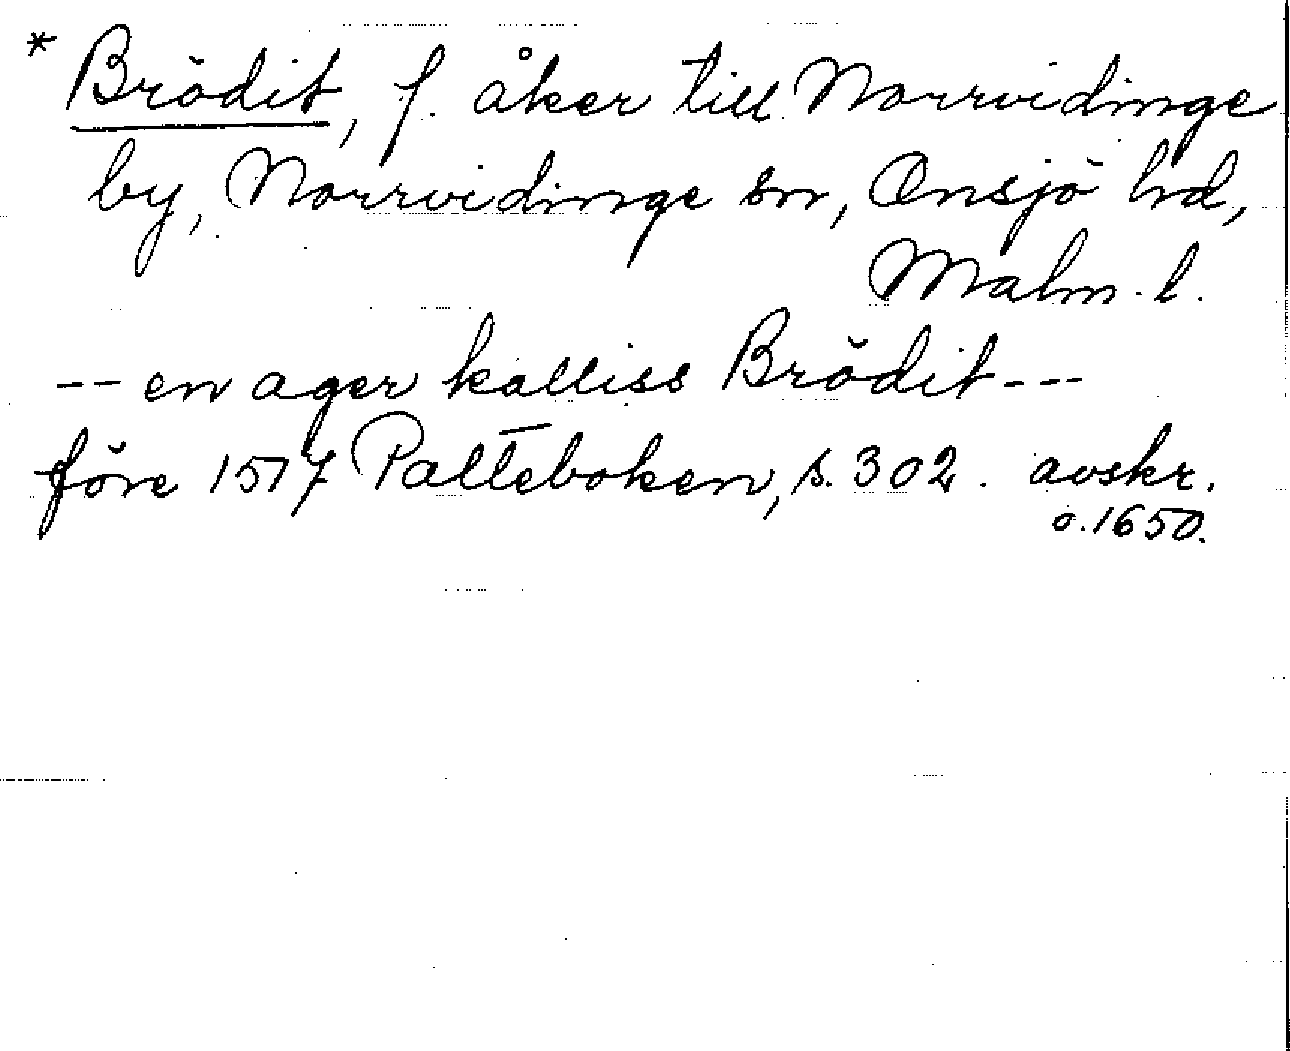 * Brödit, f. åker till Norrvidinge
by, Norrvidinge sn, Onsjö hd,
Malm. l.
-- en ager kalliss Brödit ---
före 1517 Palteboken, s. 302. avskr.
o. 1650.